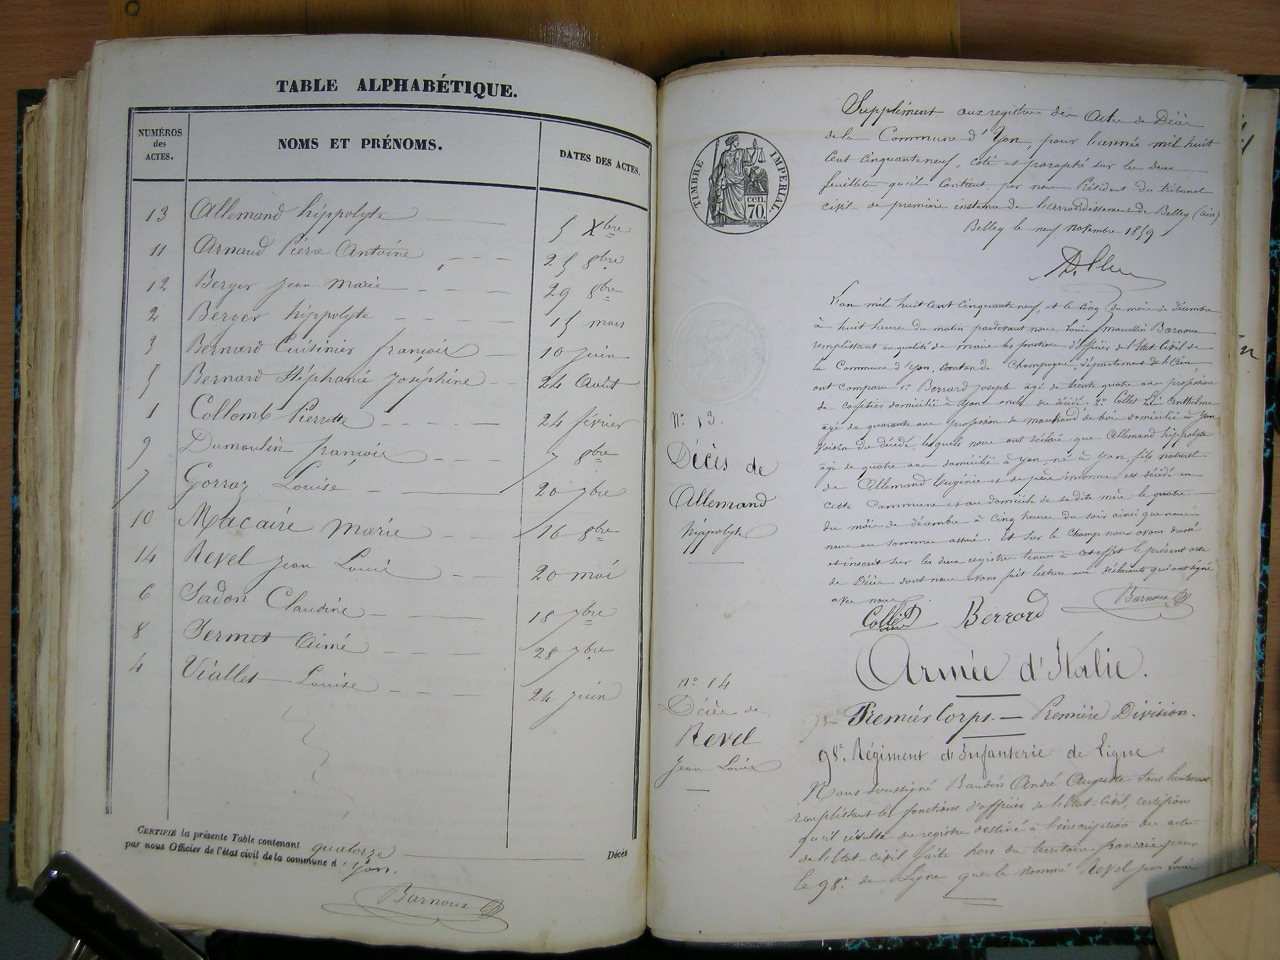 TABLE ALPHABÉTIQUE.
NUMÉROS
des
ACTES.
NOMS ET PRÉNOMS.
DATES DES ACTES.
13 Allemand hippolyte 5 Xbre
11 Arnaud Pierre Antoine 25 8bre
12 Berger jean Marie 29 8bre
2 Berger hippolyte 15 mars
3 Bernard Cuisinier françois 10 juin
5 Bernard Stéphanie Joséphine 24 Août
1 Collomb Pierrette 24 février
9 Dumoulin françois 7 8bre
7 Gorraz Louise 20 7bre
10 Macaire Marie 16 8bre
14 Revel jean Louis 20 mai
6 Sadon Claudine 18 7bre
8 Sermet Aimé 28 7bre
4 Viallet Louise 24 juin
CERTIFIÉ la présente Table contenant quatorze Décès
par nous Officier de l'état civil de la commune d'yon.
Barnoux
TIMBRE IMPERIAL.
CEN.
70.
Supplément aux registres des Actes de Décès
de la Commune d'Yon, pour l'année mil huit
Cent Cinquante neuf, coté et paraphé sur les deux
feuillets qu'il Contient par nous Président du tribunal
Civil de première instance de l'arrondissement de Belley (ain)
Belley le neuf novembre 1859
N° 13.
Décès de
Allemand
hippolyte
L'an mil huit cent cinquante neuf, et le cinq du mois de décembre
à huit heures du matin pardevant nous Louis Marcellin Barnoux
remplissant en qualité de maire les fonctions d'officier de l'état Civil de
la Commune d'yon, canton de Champagne, département de l'Ain
ont comparu 1° Berrard Joseph âgé de trente quatre ans profession
de domicilié à yon oncle du décédé 2° Collet Anthelme
âgé de quarante ans profession de marchand de bois domicilié à yon
voisin du décédé, lesquels nous ont déclaré que Allemand hippolyte
âgé de quatre ans domicilié à yon né à yon, fils naturel
de Allemand Eugénie et de père inconnu est décédé en
cette Commune et au domicile de sa dite mère le quatre
du mois de décembre à cinq heures du soir ainsi que nous
nous en sommes assuré. et sur le champ nous avons dressé
et inscrit sur les deux registres tenus à cet effet le présent acte
de Décès dont nous avons fait lecture aux déclarants qui ont signé
avec nous.
Collet Berrard Barnoux
N° 14
Décès de
Revel
Jean Louis
Armée d'Italie.
Premier Corps. — Première Division.
98e Régiment d'Infanterie de Ligne
Nous soussigné Baudoin André Auguste Sous lieutenant
remplissant les fonctions d'officier de l'état-Civil, certifions
qu'il résulte du registre destiné à l'inscription des actes
de l'état civil faits hors du territoire français pour
le 98e de Ligne que le nommé Revel jean Louis